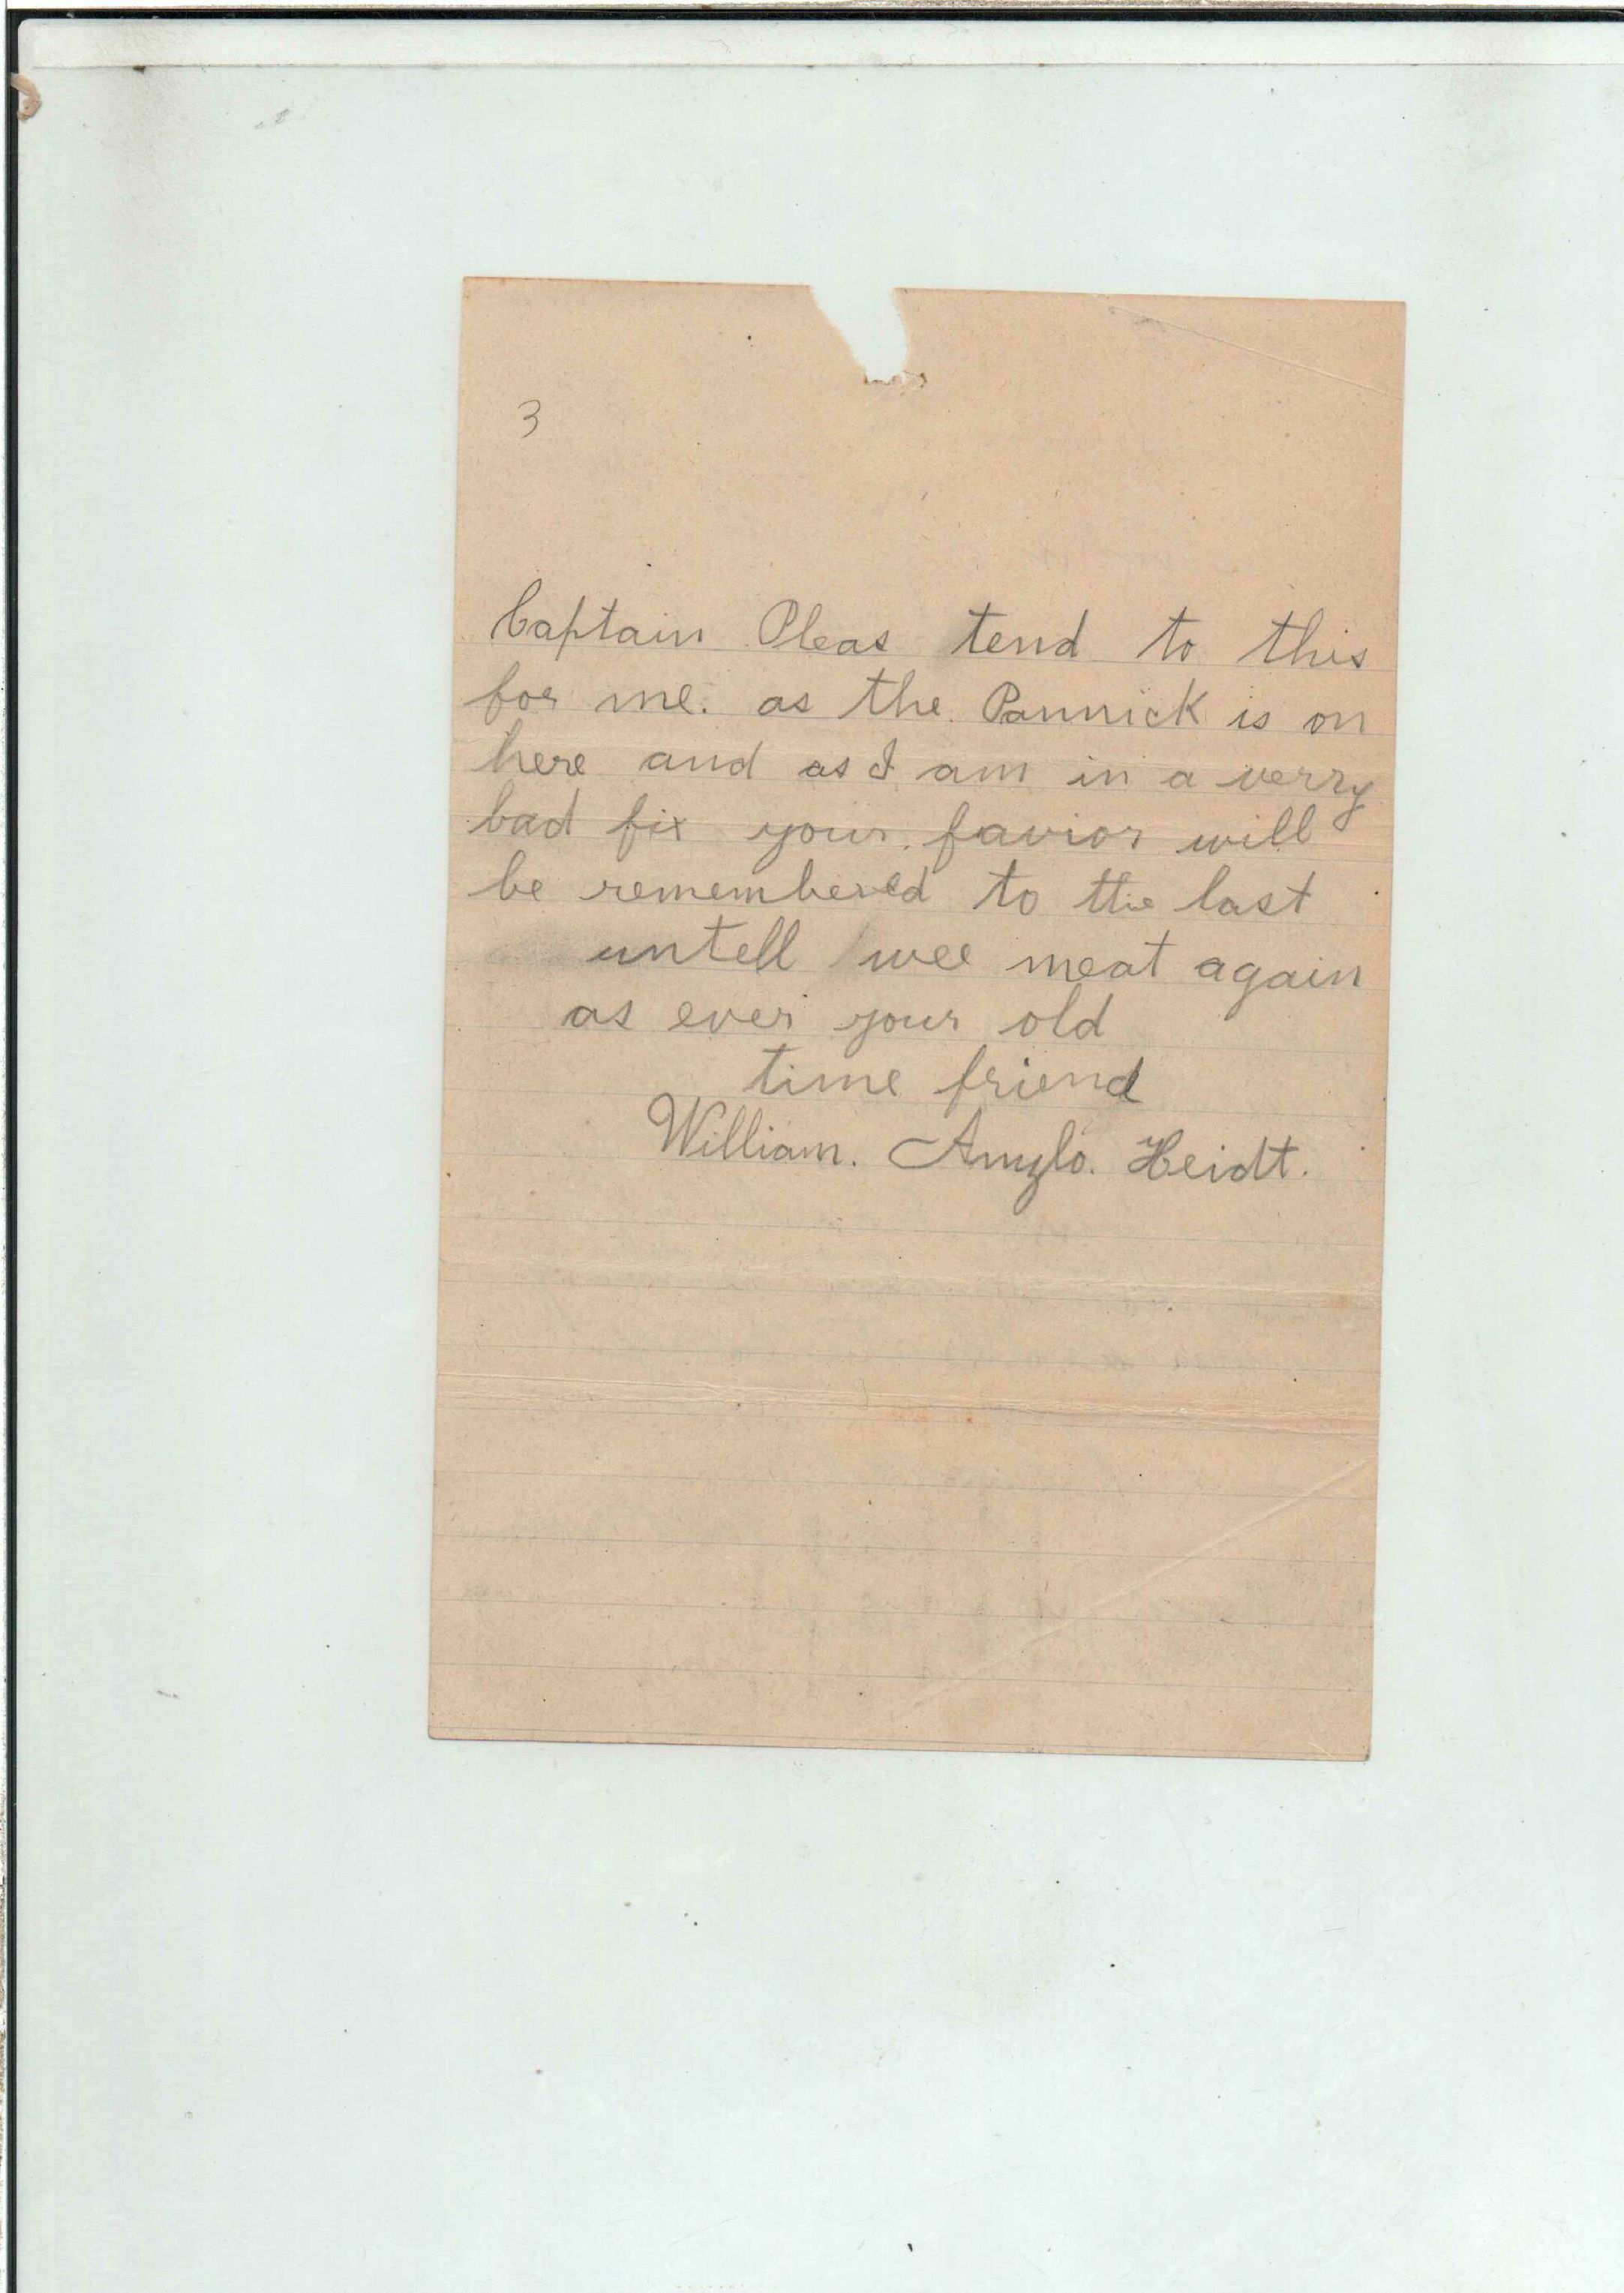 3
Captain Pleas tend to this
for me. as the Pannick is on
here and as I am in a verry
bad fix your favior will
be remembered to the last
untell wee meat again
as ever your old
time friend
William. Heidt.